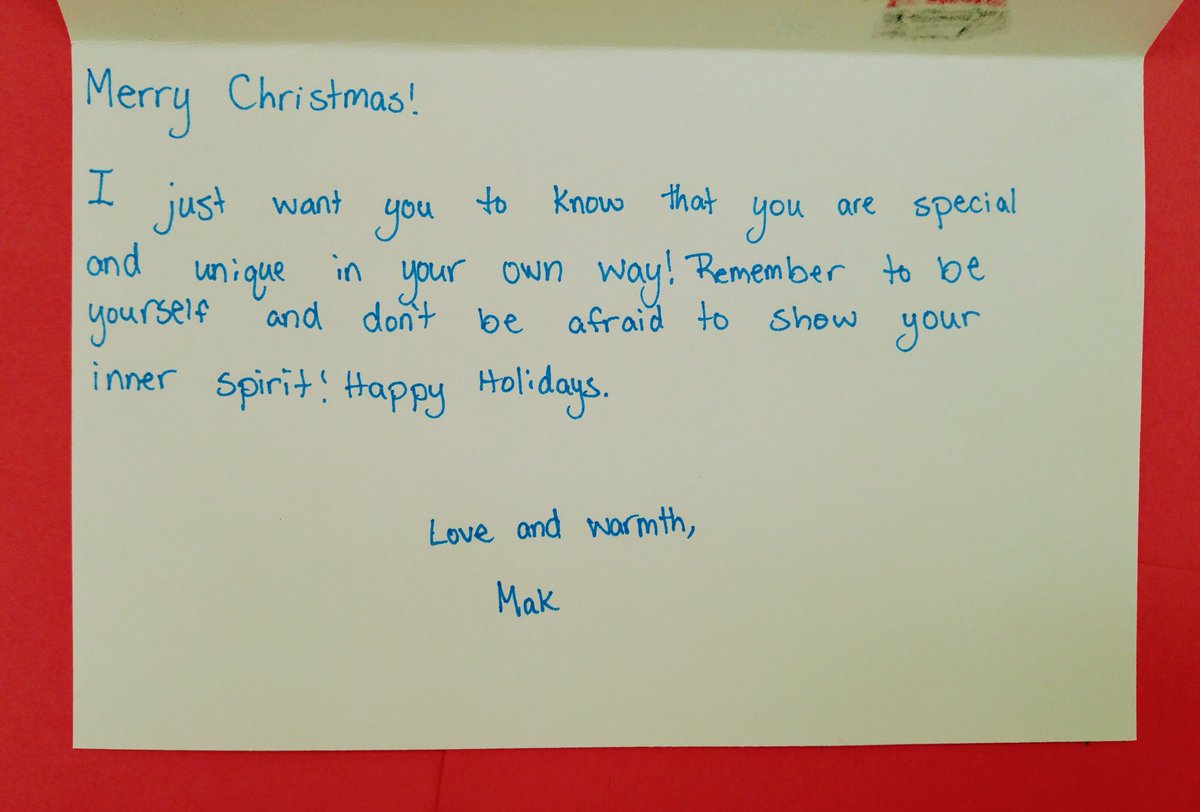 Merry Christmas!
I just want you to know that you are special
and unique in your own way! Remember to be
yourself and don't be afraid to show your
inner spirit! Happy Holidays.
Love and warmth,
Mak